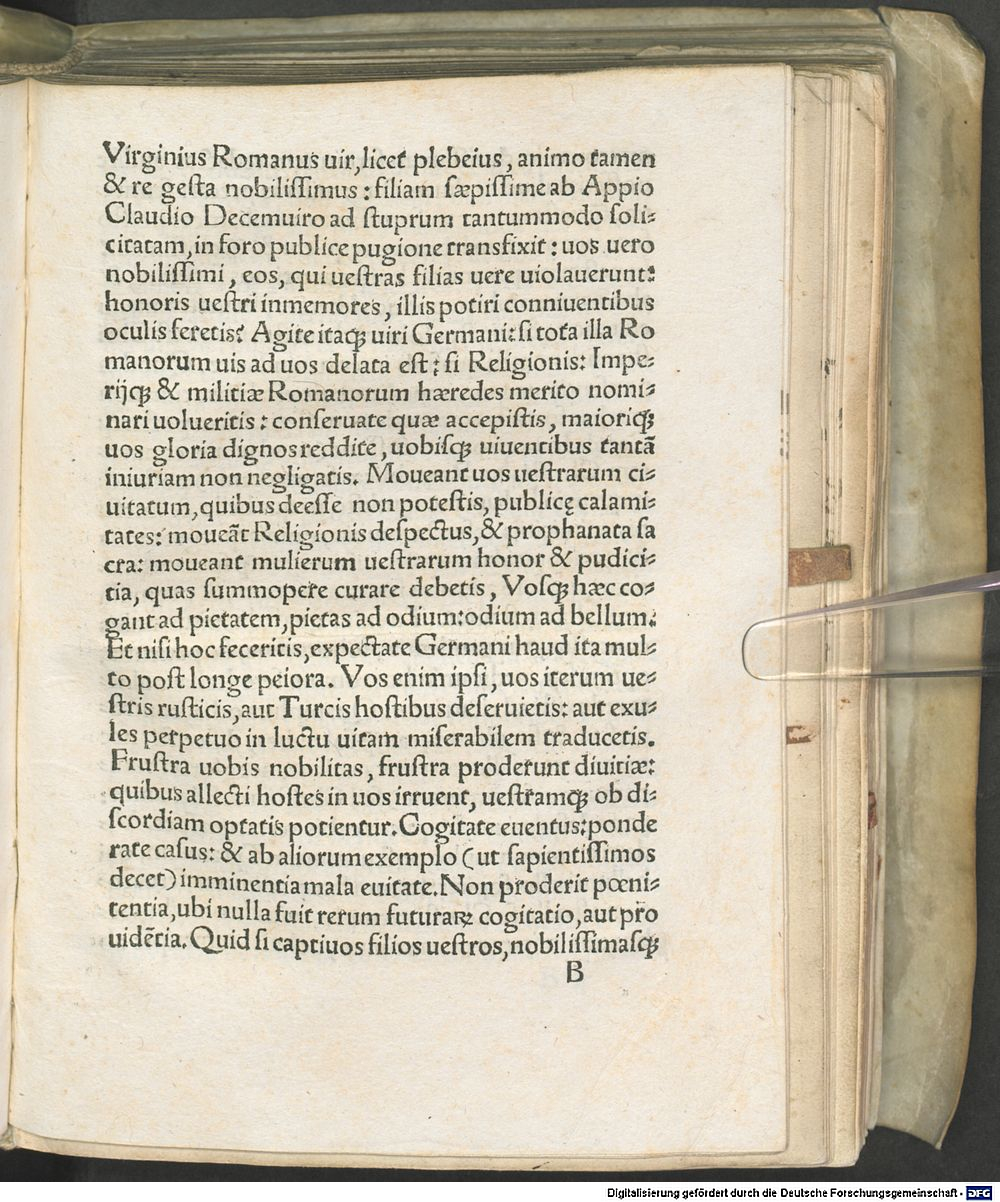 Virginius Romanus uir, licet plebeius, animo tamen
& re gesta nobilissimus: filiam sæpissime ab Appio
Claudio Decemuiro ad stuprum tantummodo soli-
citatam, in foro publice pugione transfixit: uos uero
nobilissimi, eos, qui uestras filias uere uiolauerunt:
honoris uestri inmemores, illis potiri conniuentibus
oculis feretis? Agite itaqꝫ uiri Germani: si tota illa Ro
manorum uis ad uos delata est: si Religionis: Impe-
rijqꝫ & militiæ Romanorum hæredes merito nomi-
nari uolueritis: conseruate quæ accepistis, maioriqꝫ
uos gloria dignos reddite, uobisqꝫ uiuentibus tantã
iniuriam non negligatis. Moueant uos uestrarum ci-
uitatum, quibus deesse non potestis, publicę calami-
tates: moueãt Religionis despectus, & prophanata sa
cra: moueant mulierum uestrarum honor & pudici-
tia, quas summopere curare debetis, Vosqꝫ hæc co-
gant ad pietatem, pietas ad odium: odium ad bellum.
Et nisi hoc feceritis, expectate Germani haud ita mul-
to post longe peiora. Vos enim ipsi, uos iterum ue-
stris rusticis, aut Turcis hostibus deseruietis: aut exu-
les perpetuo in luctu uitam miserabilem traducetis.
Frustra uobis nobilitas, frustra proderunt diuitiæ:
quibus allecti hostes in uos irruent, uestramqꝫ ob di-
scordiam optatis potientur. Cogitate euentus: ponde
rate casus: & ab aliorum exemplo (ut sapientissimos
decet) imminentia mala euitate. Non proderit pœni-
tentia, ubi nulla fuit rerum futuraꝝ cogitatio, aut pro
uidẽtia. Quid si captiuos filios uestros, nobilissimasqꝫ
B
Digitalisierung gefördert durch die Deutsche Forschungsgemeinschaft - DFG